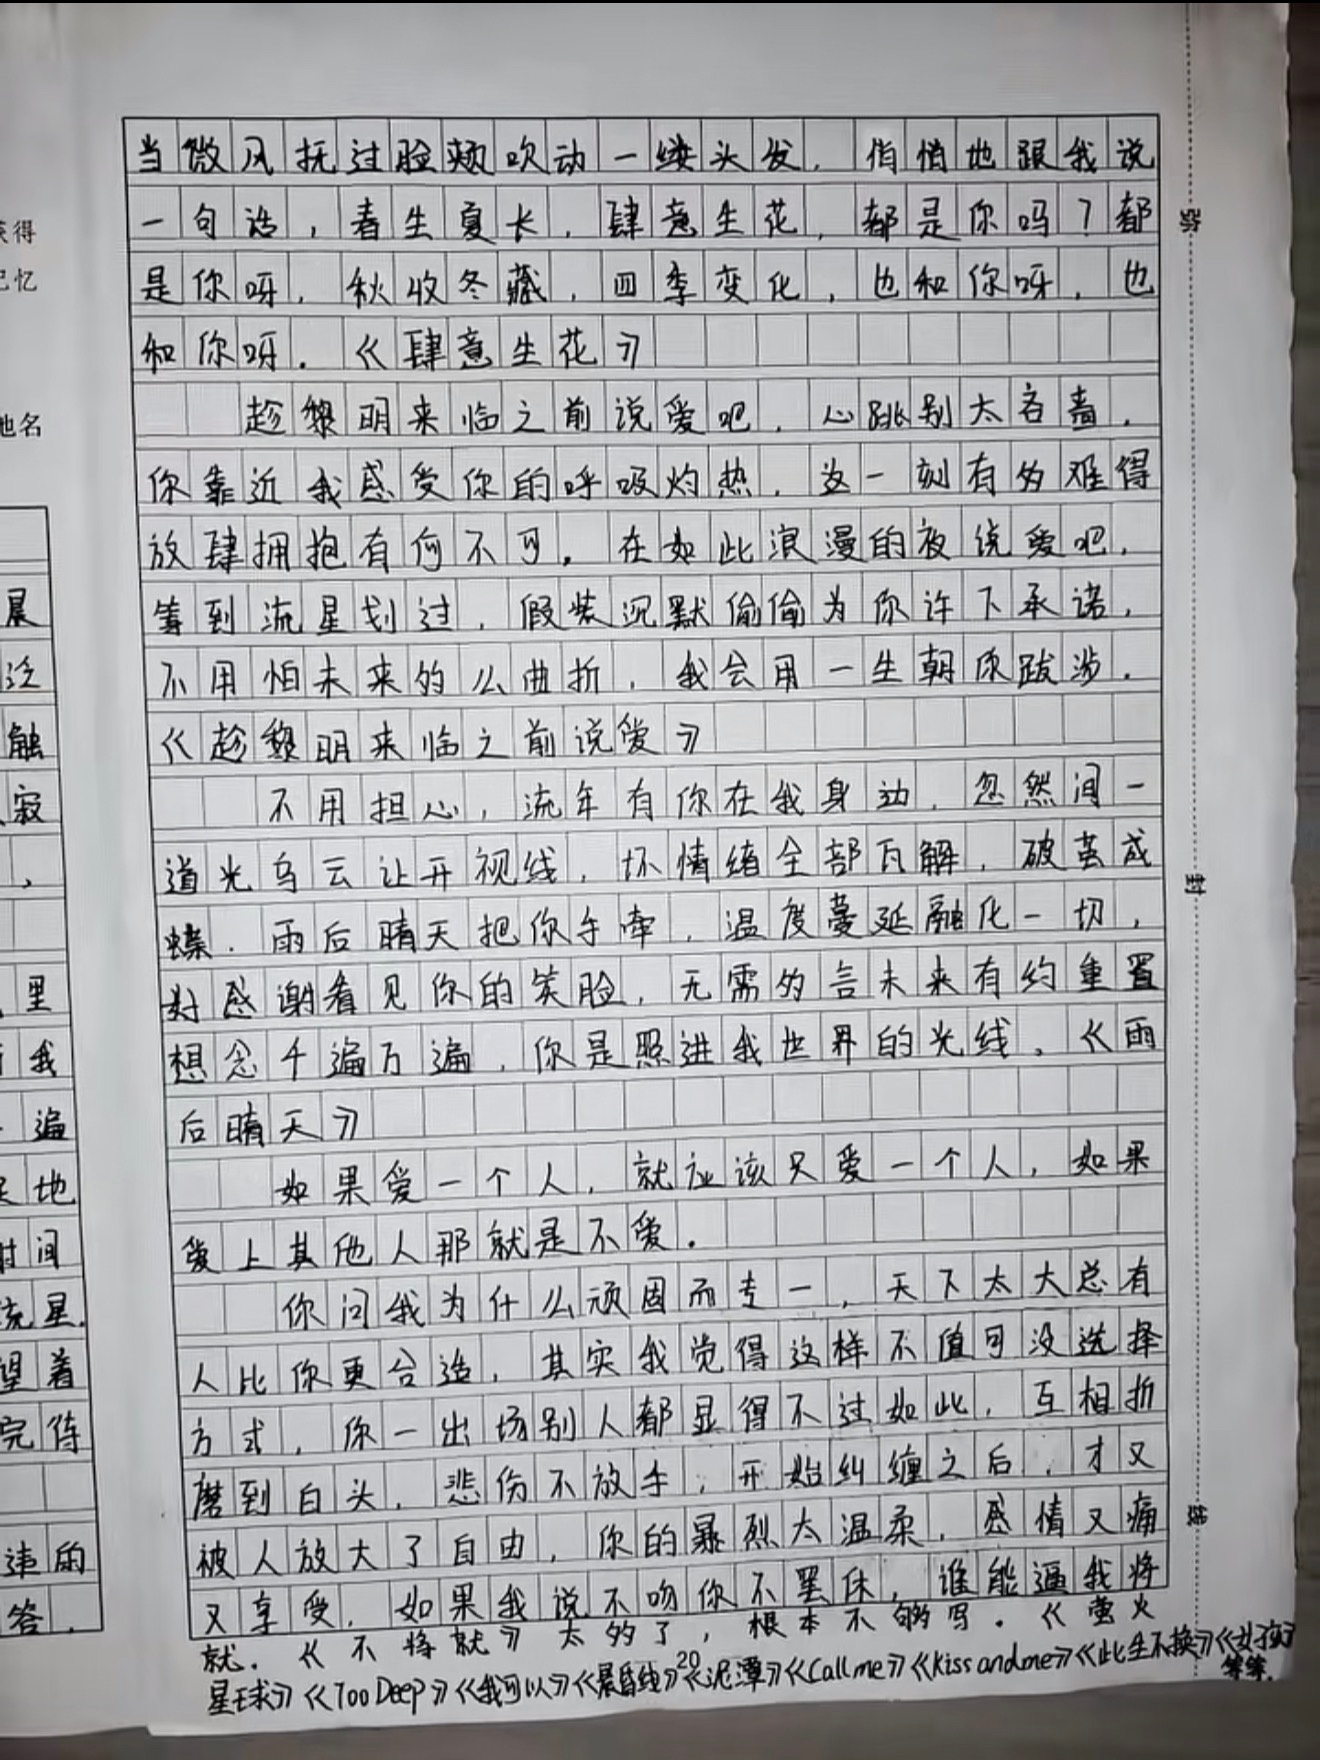 当微风抚过脸颊吹动一缕头发，俏悄地跟我说
一句话，春生夏长，肆意生花，都是你吗？都
是你呀，秋收冬藏，四季变化，也和你呀，也
和你呀。《肆意生花》
趁黎明来临之前说爱吧，心跳别太吝啬，
你靠近我感受你的呼吸灼热，这一刻有多难得
放肆拥抱有何不可。在如此浪漫的夜说爱吧，
等到流星划过，假装沉默偷偷为你许下承诺，
不用怕未来多么曲折，我会用一生朝你跋涉。
《趁黎明来临之前说爱》
不用担心，流年有你在我身边，忽然间一
道光乌云让开视线，坏情绪全部瓦解，破茧成
蝶，雨后晴天把你手牵，温度蔓延融化一切，
好感谢看见你的笑脸，无需多言未来有约重置
想念千遍万遍，你是照进我世界的光线。《雨
后晴天》
如果爱一个人，就应该只爱一个人，如果
爱上其他人那就是不爱。
你问我为什么顽固而专一，天下太大总有
人比你更合适，其实我觉得这样不值可没选择
方式，你一出场别人都显得不过如此，互相折
磨到白头，悲伤不放手，开始纠缠之后，才又
被人放大了自由，你的暴烈太温柔，感情又痛
又享受，如果我说不吻你不罢休，谁能逼我将
就。《不将就》太多了，根本不够写。《萤火
星球》《Too Deep》《我可以》《晨昏线》《泥潭》《Call me》《Kiss and me》《此生不换》《女孩》
等等.
20
获得
记忆
地名
晨
泛
触
寂
，
里
我
遍
地
时间
流星.
望着
完待
违的
答.
封